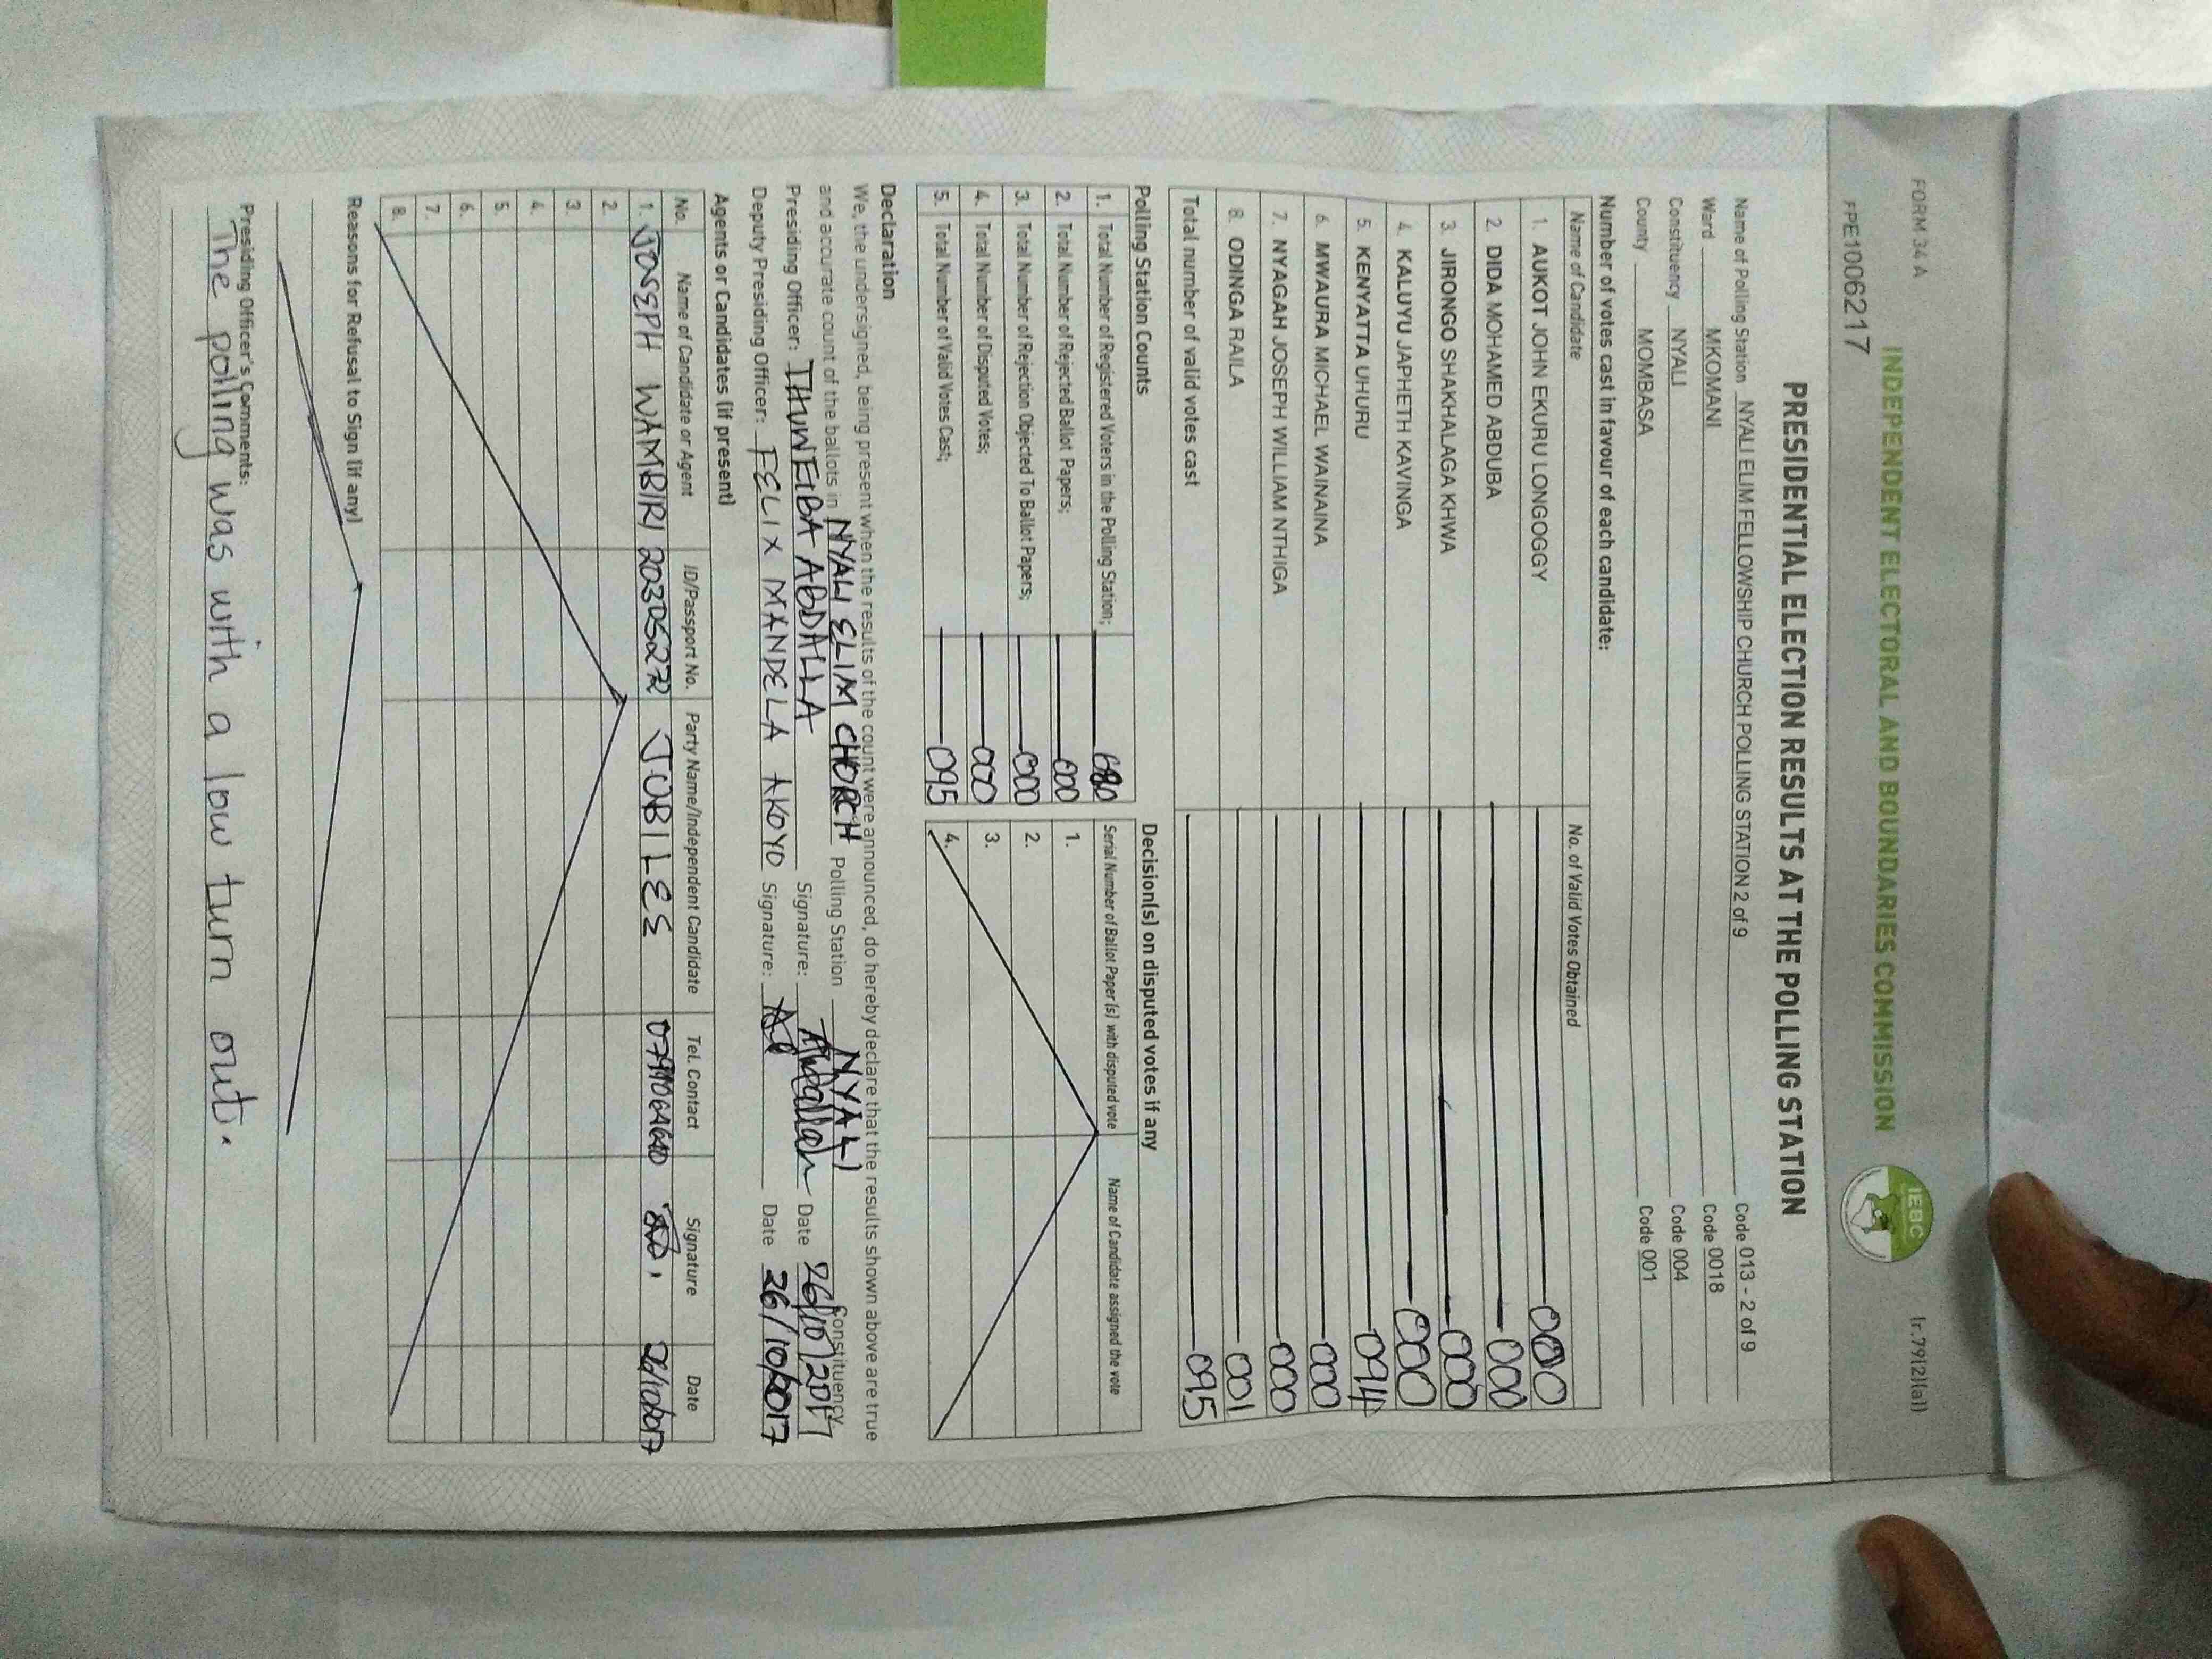 FORM 34 A
(r.79(2)(a))
INDEPENDENT ELECTORAL AND BOUNDARIES COMMISSION
IEBC
FPE1006217
PRESIDENTIAL ELECTION RESULTS AT THE POLLING STATION
Name of Polling Station NYALI ELIM FELLOWSHIP CHURCH POLLING STATION 2 of 9 Code 013 - 2 of 9
Ward MKOMANI Code 0018
Constituency NYALI Code 004
County MOMBASA Code 001
Number of votes cast in favour of each candidate:
Name of Candidate No. of Valid Votes Obtained
1. AUKOT JOHN EKURU LONGOGGY 000
2. DIDA MOHAMED ABDUBA 000
3. JIRONGO SHAKHALAGA KHWA 000
4. KALUYU JAPHETH KAVINGA 000
5. KENYATTA UHURU 094
6. MWAURA MICHAEL WAINAINA 000
7. NYAGAH JOSEPH WILLIAM NTHIGA 000
8. ODINGA RAILA 001
Total number of valid votes cast 095
Polling Station Counts
1. Total Number of Registered Voters in the Polling Station; 680
2. Total Number of Rejected Ballot Papers; 000
3. Total Number of Rejection Objected To Ballot Papers; 000
4. Total Number of Disputed Votes; 000
5. Total Number of Valid Votes Cast; 095
Decision(s) on disputed votes if any
Serial Number of Ballot Paper (s) with disputed vote Name of Candidate assigned the vote
1.
2.
3.
4.
Declaration
We, the undersigned, being present when the results of the count were announced, do hereby declare that the results shown above are true
and accurate count of the ballots in NYALI ELIM CHURCH Polling Station NYALI Constituency
Presiding Officer: THUWEIBA ABDALLA Signature: Date 26/10/2017
Deputy Presiding Officer: FELIX MANDELA AKOYO Signature: Date 26/10/2017
Agents or Candidates (if present)
No. Name of Candidate or Agent ID/Passport No. Party Name/Independent Candidate Tel. Contact Signature Date
1. JOSEPH WAMBIRI 20305272 JUBILEE 26/10/2017
2.
3.
4.
5.
6.
7.
8.
Reasons for Refusal to Sign (if any)
Presiding Officer's Comments:
The polling was with a low turn out.